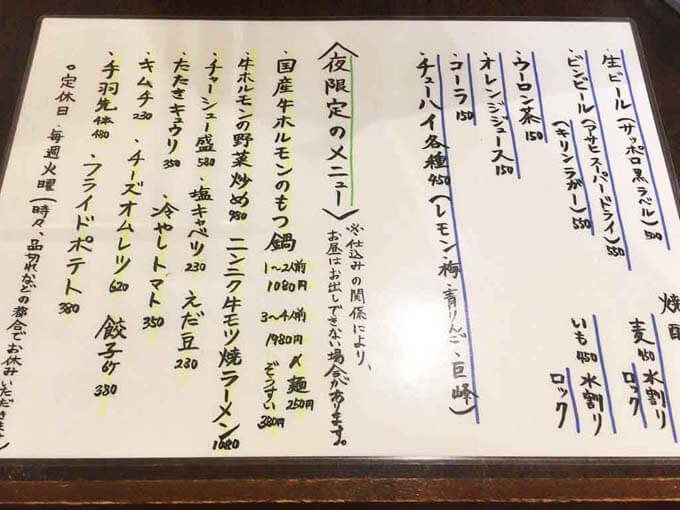 ・生ビール(サッポロ黒ラベル)500
・ビンビール(アサヒスーパードライ)550
(キリンラガー)550
・ウーロン茶150
・オレンジジュース150
・コーラ150
・チューハイ各種450(レモン・梅・青りんご・巨峰)
焼酎
麦450 水割り
ロック
いも450 水割り
ロック
〈夜限定のメニュー〉
※仕込みの関係により、
お昼はお出しできない場合があります。
・国産牛ホルモンのもつ鍋 1〜2人前1080円 3〜4人前1980円 〆麺250円 ぞうすい380円
・牛ホルモンの野菜炒め980 ・ニンニク牛モツ焼ラーメン1080
・チャーシュー盛580 ・塩キャベツ230 ・えだ豆280
・たたきキュウリ350 ・冷やしトマト350
・キムチ230 ・チーズオムレツ620 ・餃子6ケ380
・手羽先4本480 ・フライドポテト380
○定休日・毎週火曜(時々、品切れなどの都合でお休みいただきます)